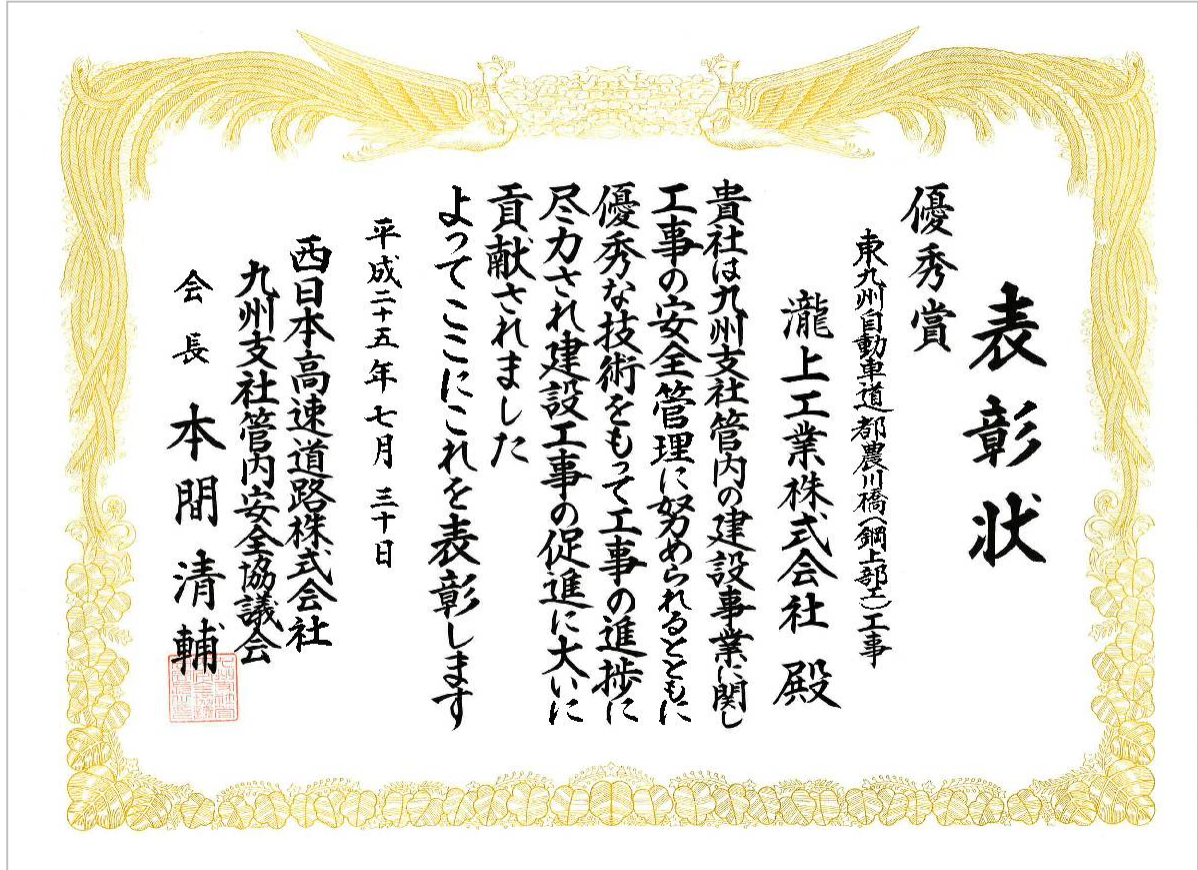 表彰状
優秀賞
東九州自動車道都農川橋(鋼上部工)工事
瀧上工業株式会社 殿
貴社は九州支社管内の建設事業に関し
工事の安全管理に努められるとともに
優秀な技術をもって工事の進捗に
尽力され建設工事の促進に大いに
貢献されました
よってここにこれを表彰します
平成二十五年七月三十日
西日本高速道路株式会社
九州支社管内安全協議会
会長 本間清輔